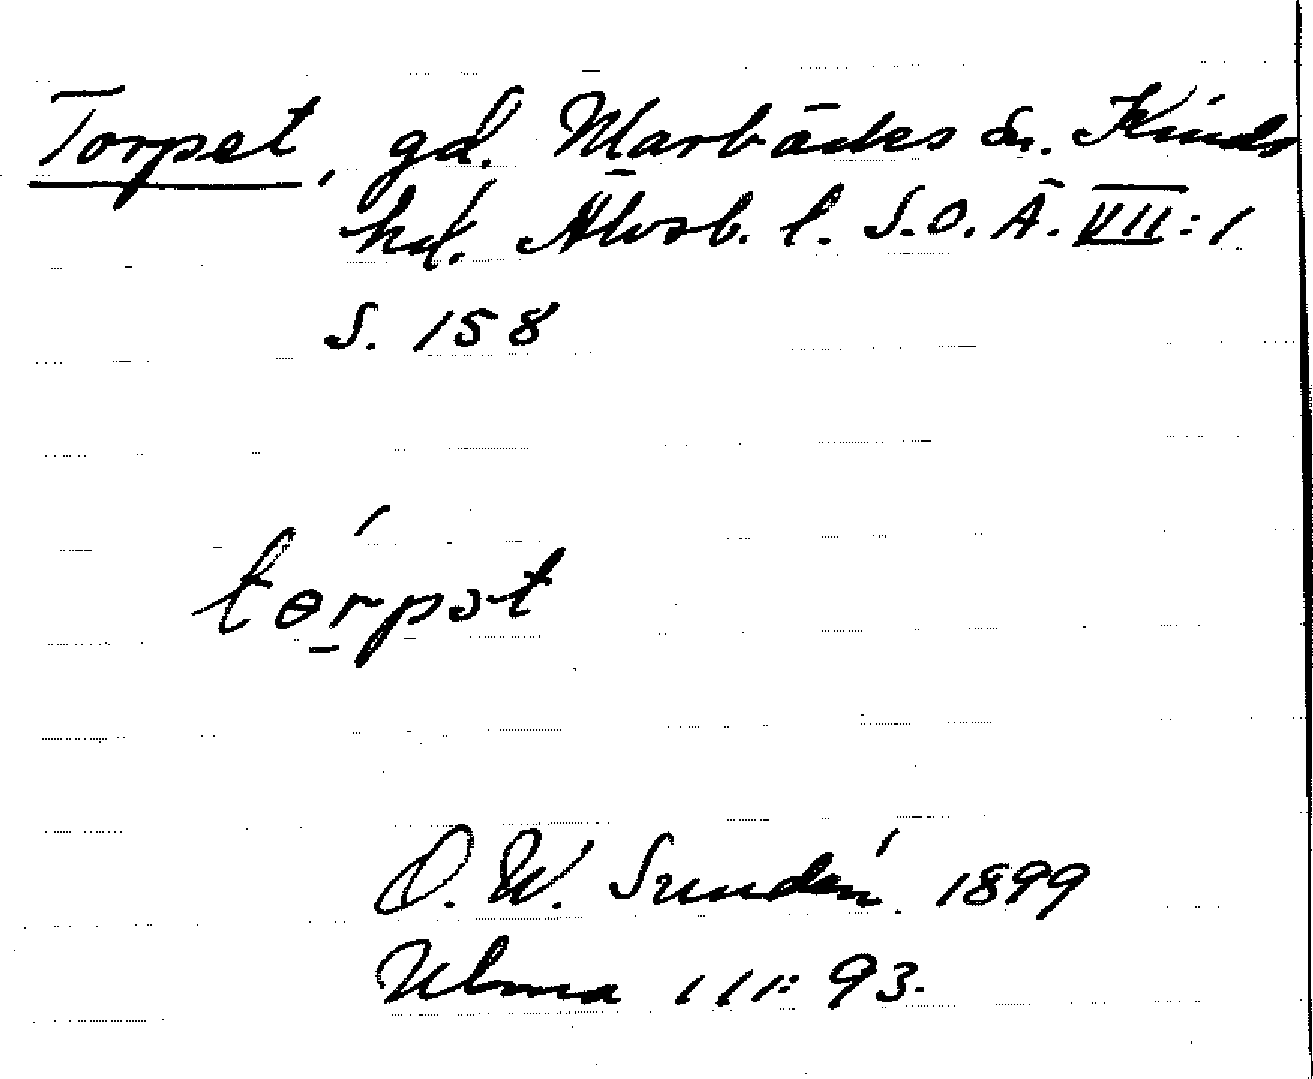 Torpet, gd. Marbäcks sn. Kinds
hd. Älvsb. l. S.O.Ä. VII:1
S. 158
tɵ́rpət
D. W. Sundén 1899
Ulma 111:93.